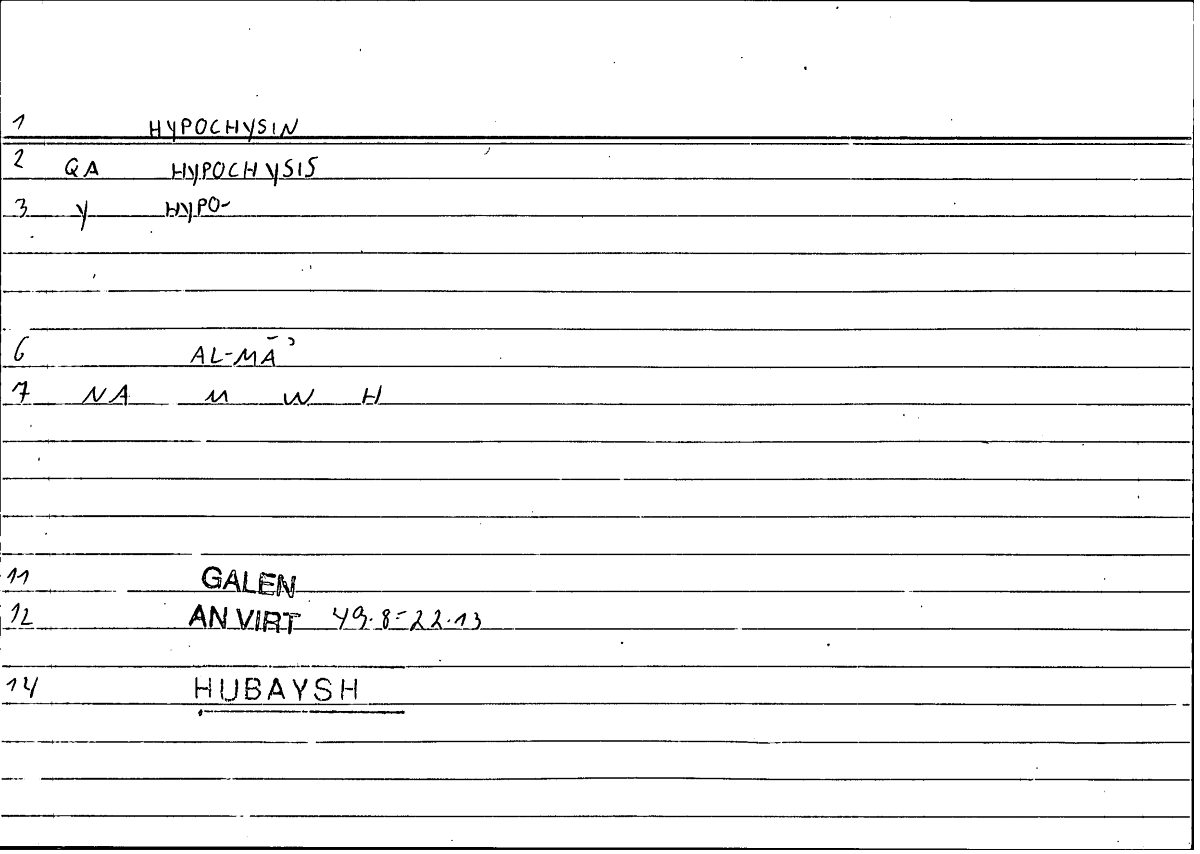 1 HYPOCHYSIN
2 QA HYPOCHYSIS
3 Y HYPO-
6 AL-MĀʾ
7 NA M W H
11 GALEN
12 AN VIRT 49.8=22.13
14 HUBAYSH